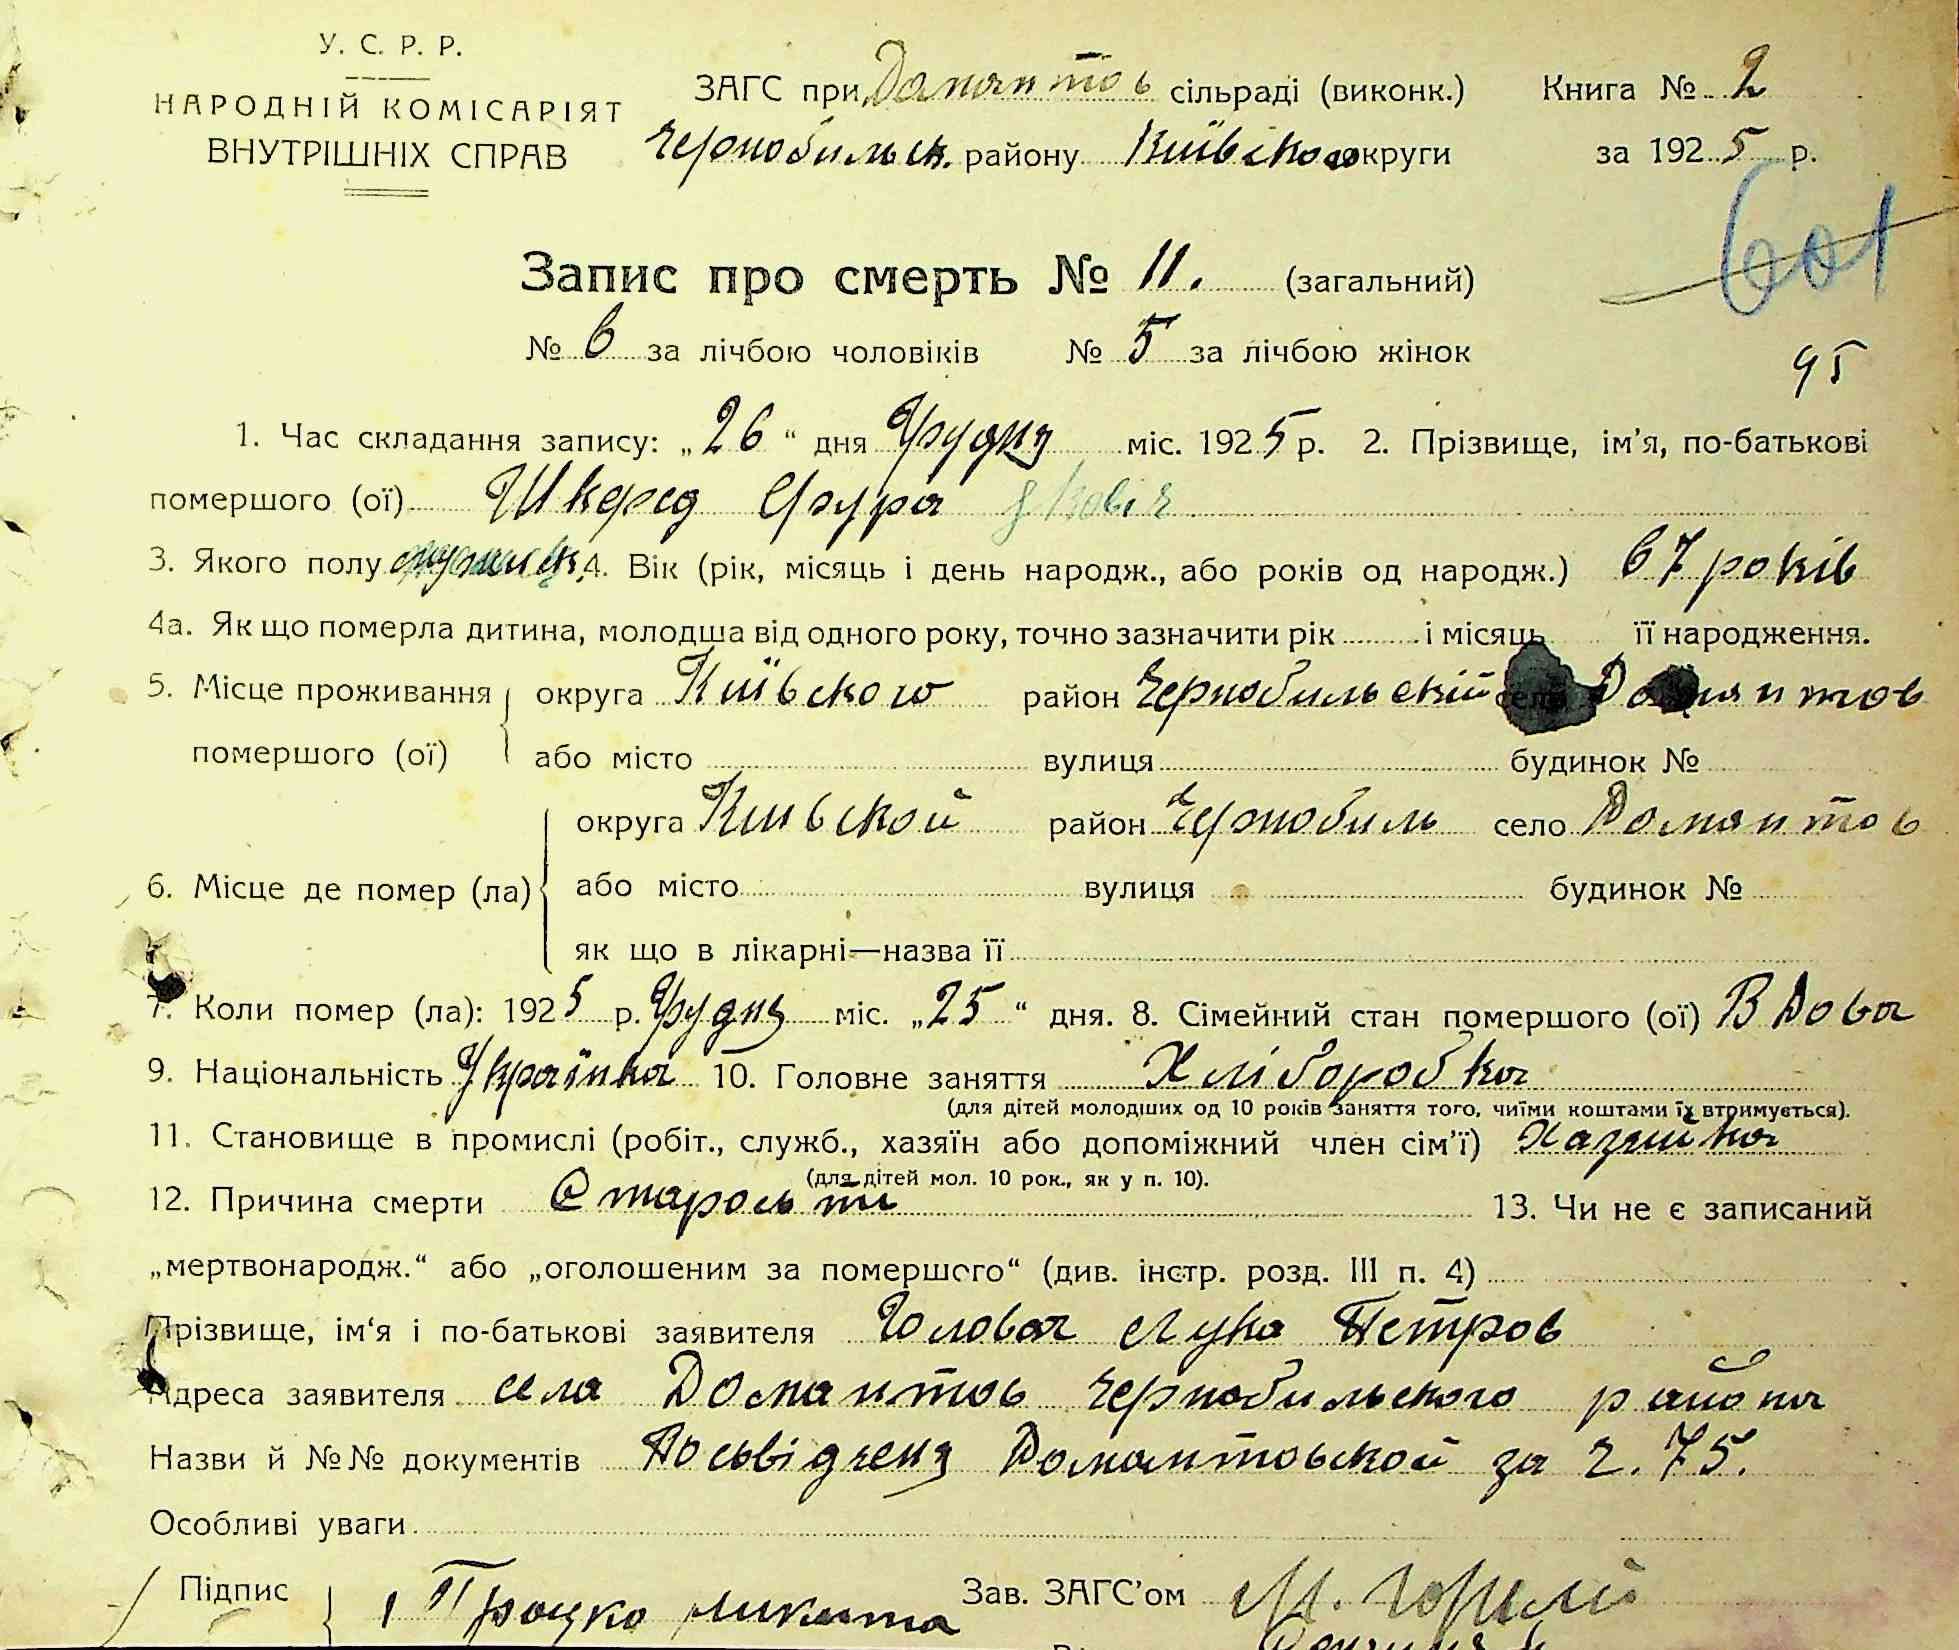 У. С. Р. Р.
НАРОДНІЙ КОМІСАРІЯТ
ВНУТРІШНІХ СПРАВ
ЗАГС при Домантов сільраді (виконк.) Книга № 2
Чернобильск. району Київского округи за 1925 р.
601
Запис про смерть № 11. (загальний)
№ 6 за лічбою чоловіків № 5 за лічбою жінок
95
1. Час складання запису: „26“ дня Грудня міс. 1925 р. 2. Прізвище, ім'я, по-батькові
помершого (ої)
3. Якого полу 4. Вік (рік, місяць і день народж., або років од народж.) 67 років
4а. Як що померла дитина, молодша від одного року, точно зазначити рік і місяць її народження.
5. Місце проживання округа Київского район Чернобильскій село Домантов
помершого (ої) або місто вулиця будинок №
округа Киівской район Чернобиль село Домантов
6. Місце де помер (ла) або місто вулиця будинок №
як що в лікарні—назва її
7. Коли помер (ла): 1925 р. Грудня міс. „25“ дня. 8. Сімейний стан помершого (ої) Вдова
9. Національність Українка 10. Головне заняття Хліборобка
(для дітей молодших од 10 років заняття того, чиїми коштами їх втримується).
11. Становище в промислі (робіт., служб., хазяїн або допоміжний член сім'ї) Хазяйка
(для дітей мол. 10 рок., як у п. 10).
12. Причина смерти Старость 13. Чи не є записаний
„мертвонародж.“ або „оголошеним за помершого“ (див. інстр. розд. III п. 4)
Прізвище, ім'я і по-батькові заявителя Головач Лука Петров
Адреса заявителя села Домантов Чернобильского района
Назви й №№ документів Посьвідченя Домантовской за ч. 75.
Особливі уваги
Підпис 1 Микита Зав. ЗАГС'ом М.